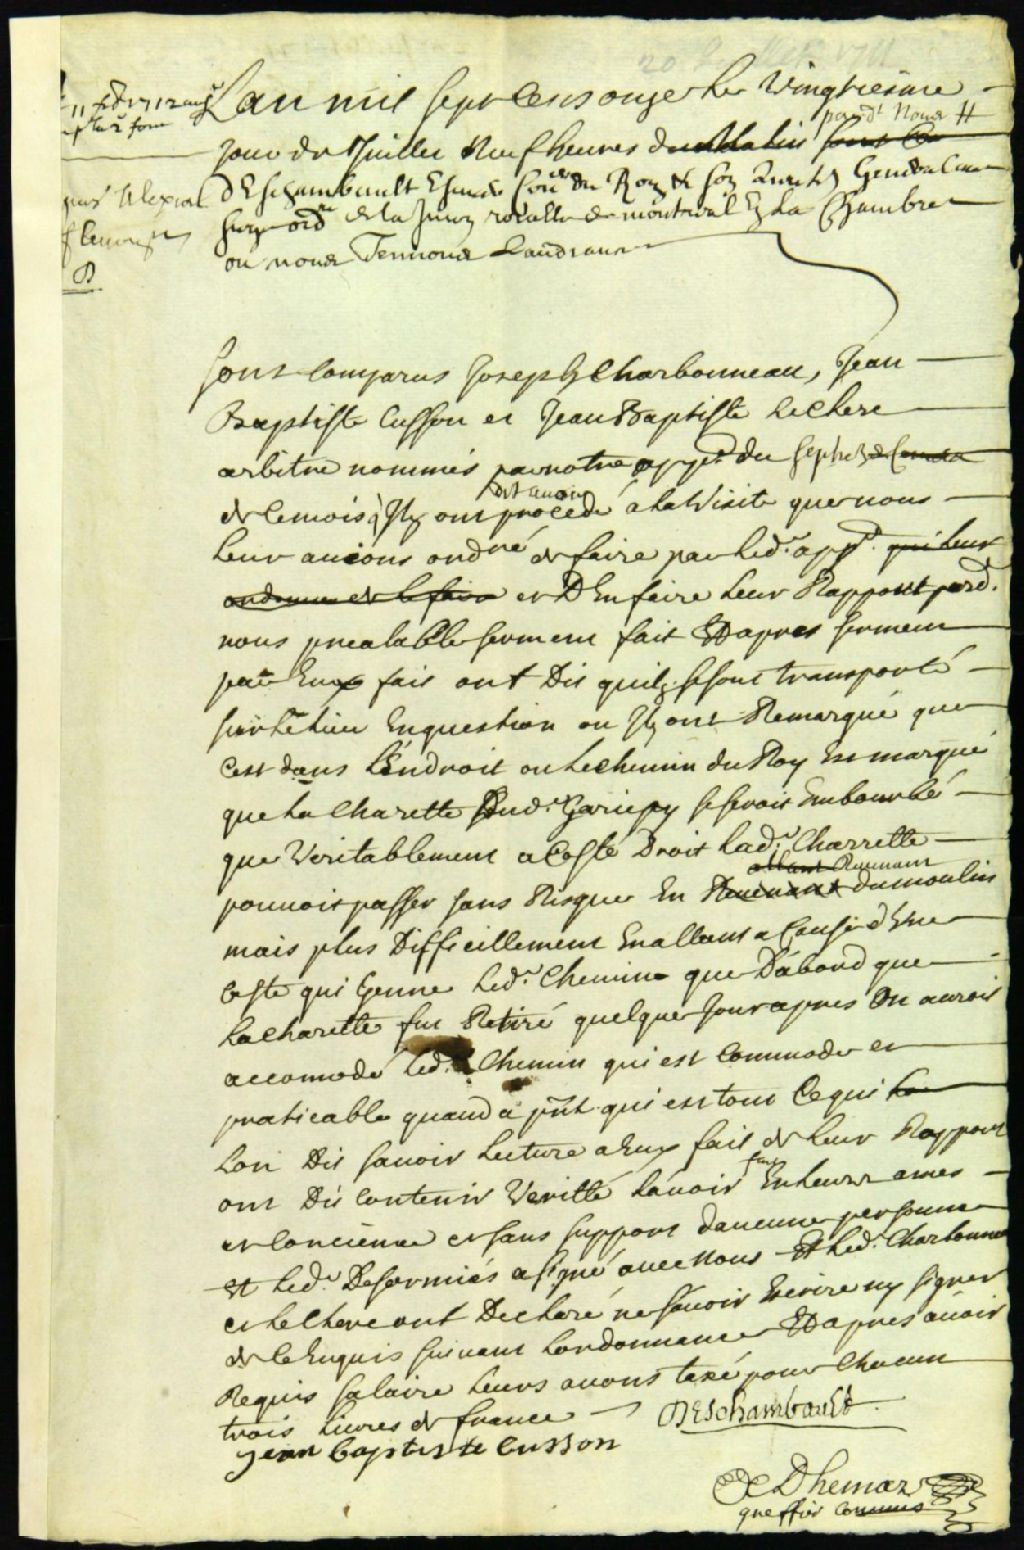 20 Juillet 1711
Lan mil sept Cens onze Le Vingtiesme
jour de Juillet Neuf heures du Matin pard.t Nous
dEschambault Escuier Con.er du Roy & son Lieut.
Juge ord.re de la Juri.on roialle de montreal En La Chambre
ou nous Tennons Laudiance
Sont Comparus Joseph Charbonneau, Jean
Baptiste Cusson et Jean Baptiste Leclere
arbitre nommés par notre app.t du sept
de Ce mois q Ilz ont dit avoir procedé a La Visite que nous
Leur auions ordné de faire par Led.t app.t qui Leur
ordonne de le faire et D En faire Leur Rapport pard.t
nous prealable serment fait Et apres serment
par Eux fait ont Dit quilz se sont transporté
sur Le Lieu En question ou Ilz ont Remarqué que
Cest dans L'Endroit ou Le chemin du Roy Est marqué
que La Charette dud.t Gariepy se serois Embourbé
que Veritablement a Costé Droit Lad.e Charrette
pouuoit passer sans Risque En Reuenant du moulin
mais plus Difficillement En allant a Cause d'Une
Coste qui Genne Led.t Chemin que D'abord que
La charette fut Retiré quelque Jour apres On aurois
accomodé Led.t Chemin qui est Commode et
praticable quand a p.nt qui est tout Ce qui
Lon Dit sauoir Lecture a Eux fait de Leur Rapport
ont Dit Contenir Verité Lauoir fait En Leurs ames
et Concience et sans support daucune personne
et Led.t Desormiés a signé auec Nous Et Led.t Charbonneau
et Leclere ont Declaré ne sauoir Escrire ny signer
de Ce Enquis suiuant Lordonnance Et apres auoir
Requis salaire Leurs auons taxé pour Chacun
trois Liures de france
DEschambault
Jean baptiste Cusson
greffier Commis